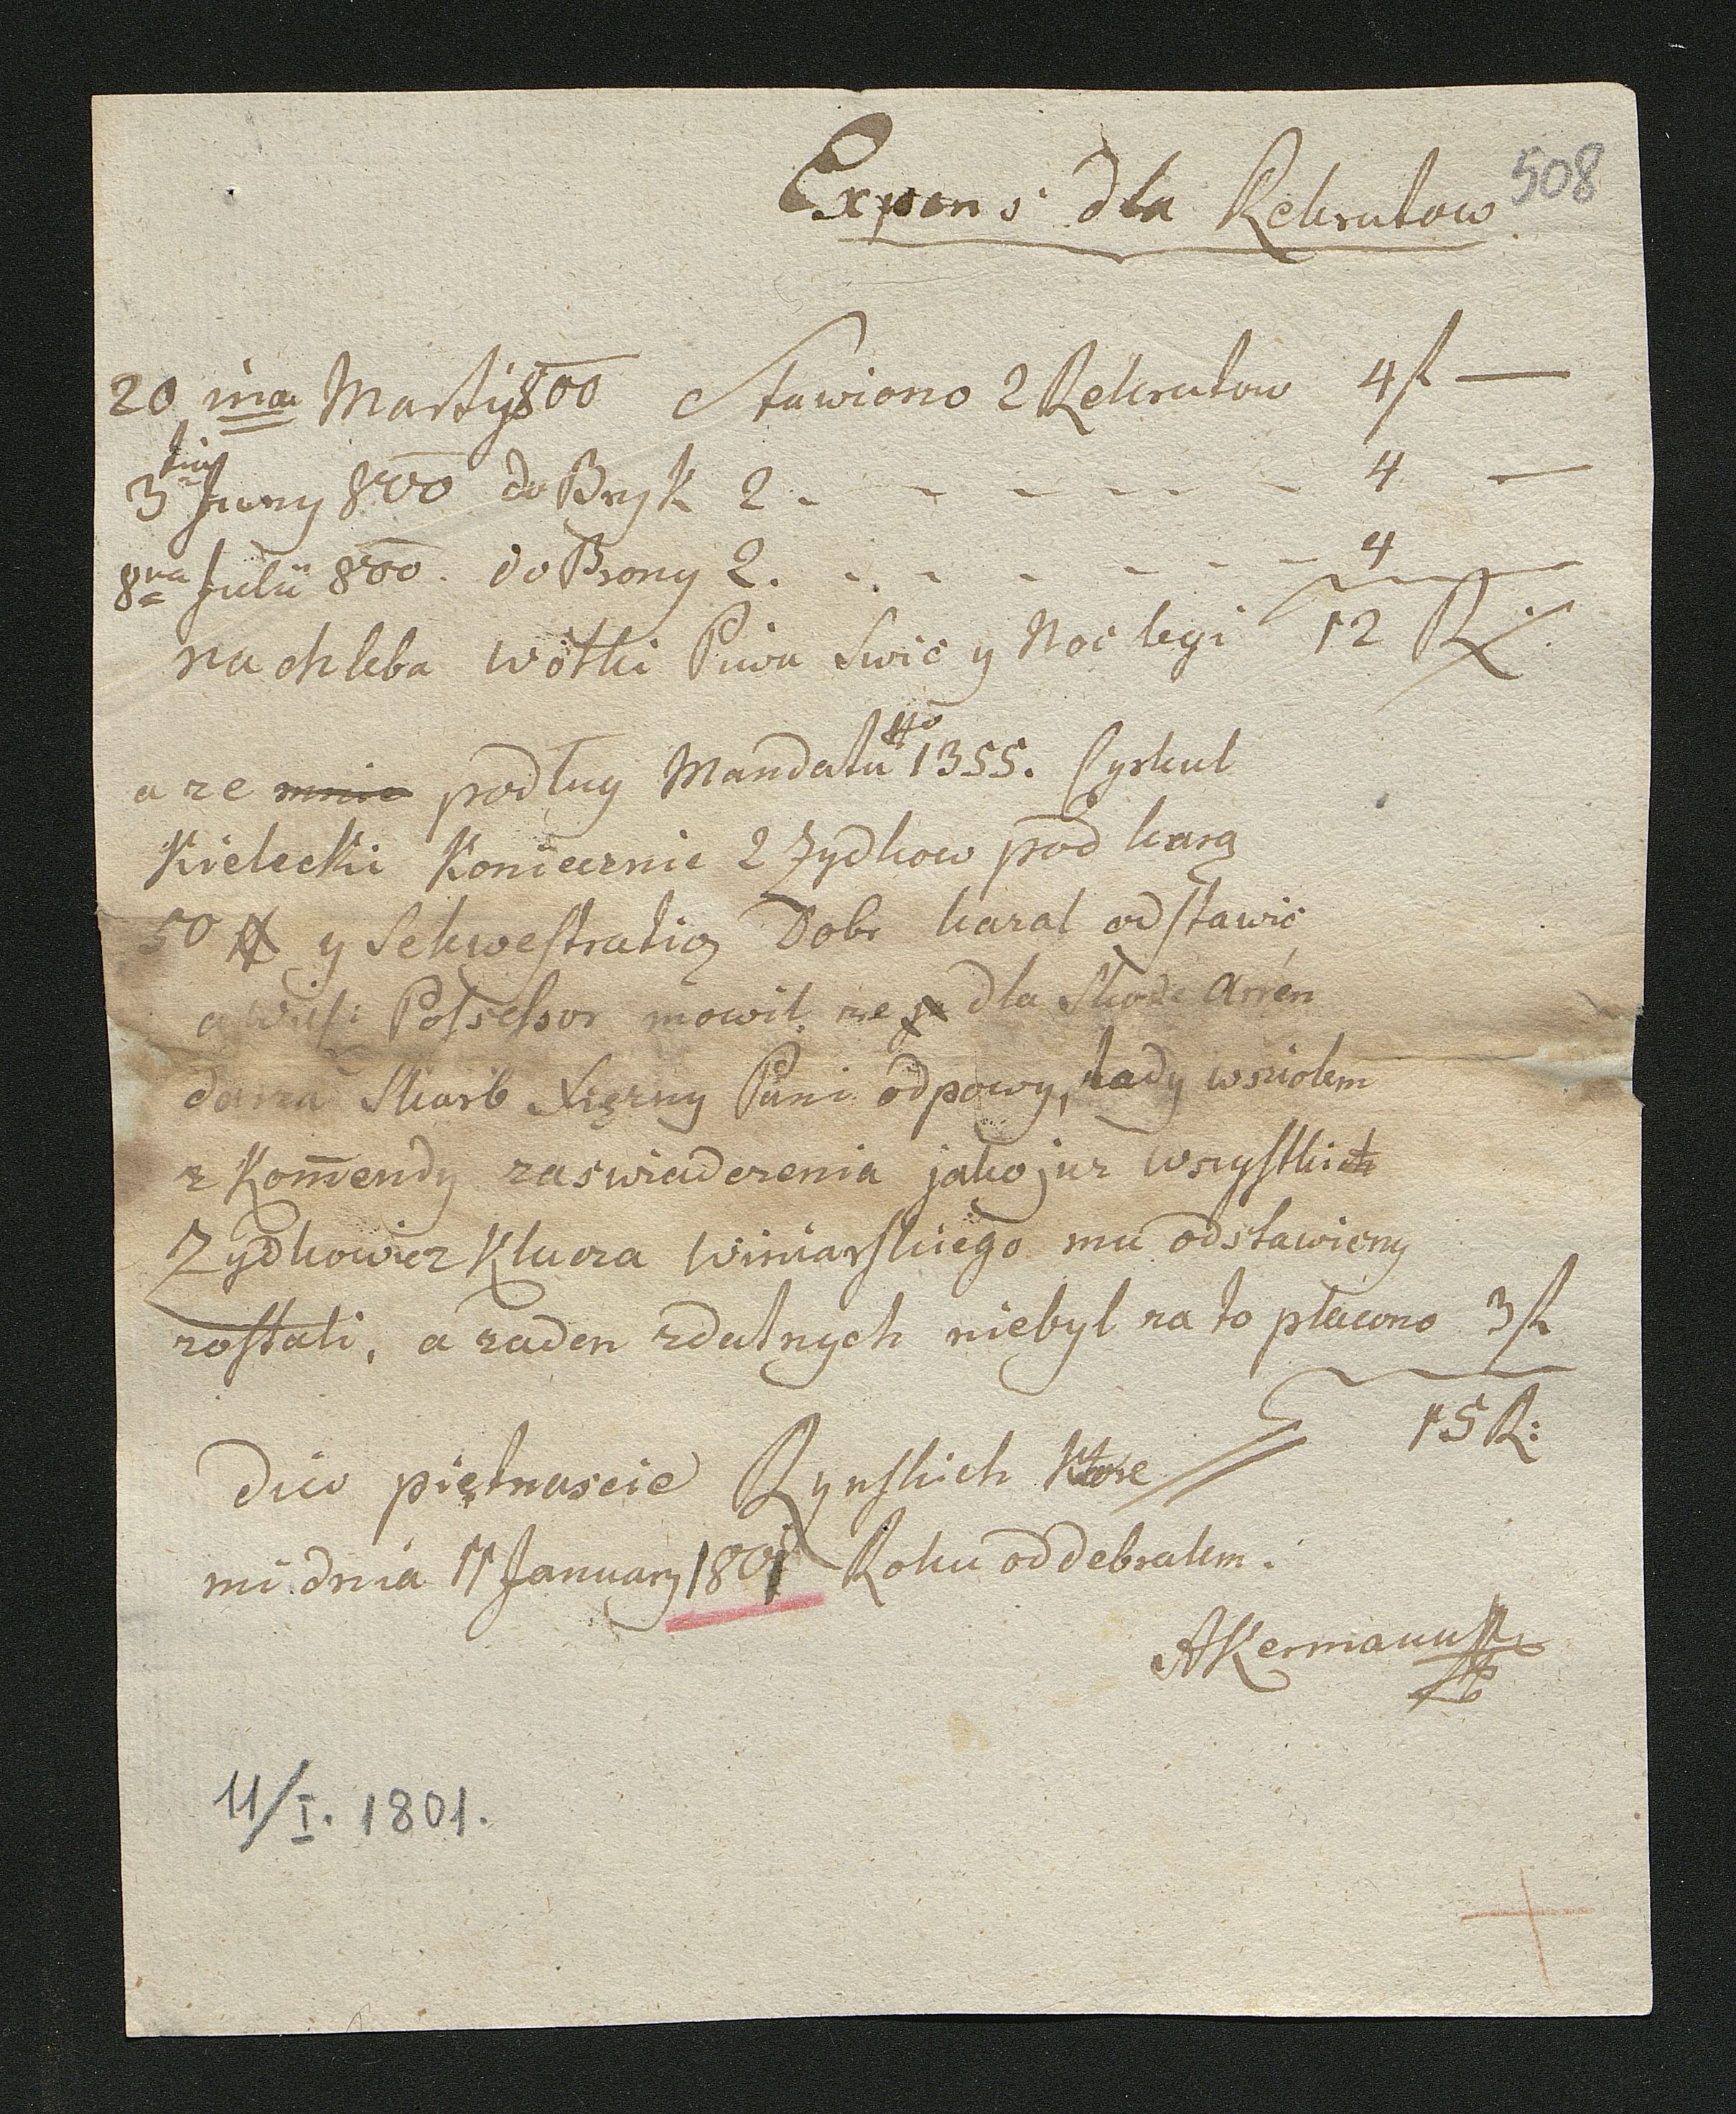 508
Expens dla Rekrutow
20 ma Marty 800 Stawiono 2 Rekrutow 4 f —
3 tia Juny 800 do Bryk 2 . - - - - - - 4 —
8 va Julii 800. do Brony 2. - - - - - - 4
na chleba wotki Piwa Swic y Noclegi 12 R
a ze podług Mandatu 1355. Cyrkuł
Kielecki Koniecznie 2 Zydkow pod karą
50 # y Sekwestratią Dobr kazal odstawić
a Possessor mowił ze dla Skode Arren
darza Skarb Xięzny Pani odpowy, tady wziolem
z Kom̄endy zaswiadczenia jako juz wszystkich
Zydkowiez Klucza Winiarskiego mu odstawiony
zostali, a zaden zdatnych niebył za to płacono 3 f
15 R:
dico piętnascie Rynskich ktore
mi dnia 11 January 1801 Roku oddebralem.
AKermann
11/I. 1801.